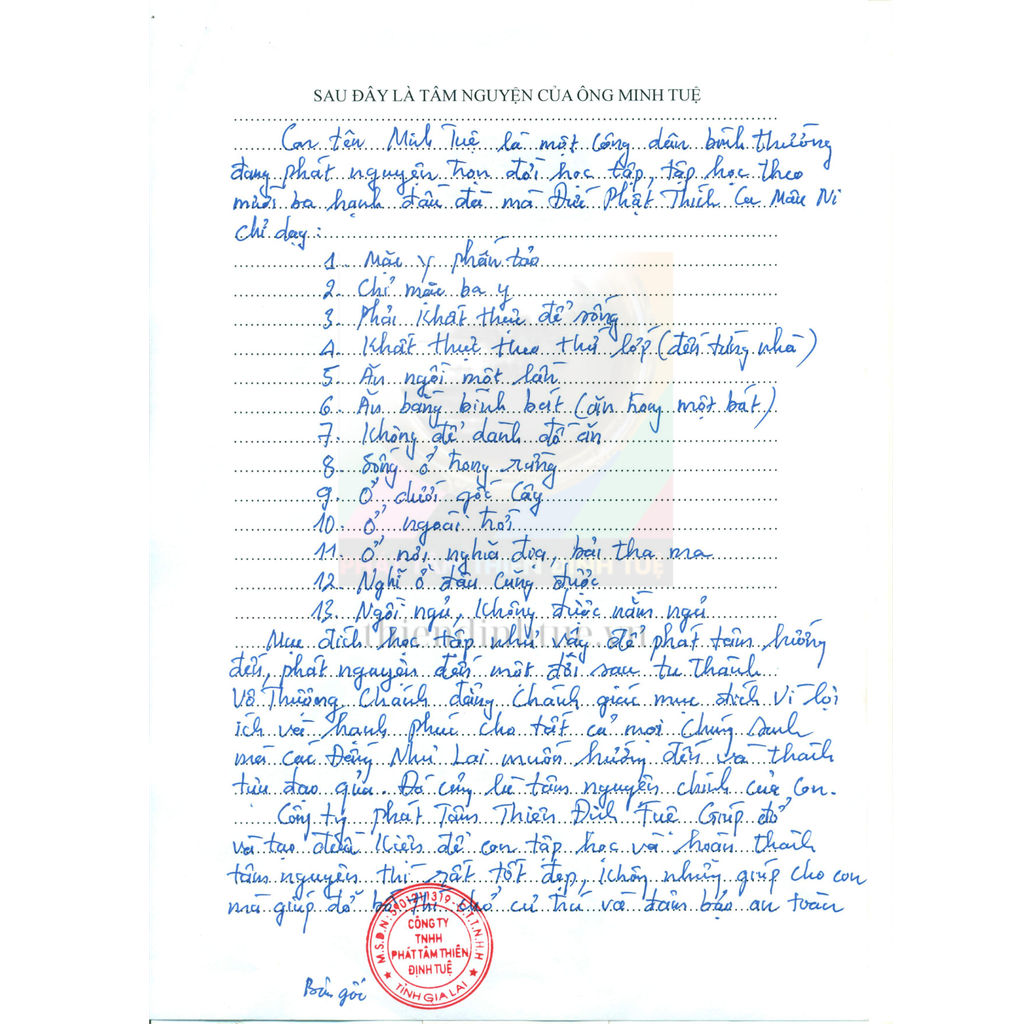 SAU ĐÂY LÀ TÂM NGUYỆN CỦA ÔNG MINH TUỆ
Con tên Minh Tuệ là một công dân bình thường
đang phát nguyện trọn đời học tập, tập học theo
mười ba hạnh đầu đà mà Đức Phật Thích Ca Mâu Ni
chỉ dạy:
1. Mặc y phấn tảo
2. Chỉ mặc ba y
3. Phải khất thực để sống
4. Khất thực theo thứ lớp (đến từng nhà)
5. Ăn ngồi một lần
6. Ăn bằng bình bát (ăn trong một bát)
7. Không để dành đồ ăn
8. Sống ở trong rừng
9. Ở dưới gốc cây
10. Ở ngoài trời
11. Ở nơi nghĩa địa, bải tha ma
12. Nghĩ ở đâu cung được
13. Ngồi ngủ, không được nằm ngủ
PHÁT TÂM THIÊN ĐỊNH TUỆ
thiendinhtue.vn
Mục đích học tập như vậy để phát tâm hướng
đến, phát nguyện đến một đời sau tu thành
Vô Thượng Chánh đẳng Chánh giác mục đích vì lợi
ích và hạnh phúc cho tất cả mọi chúng sanh
mà các Đấng Như Lai muốn hướng đến và thành
tựu đạo qủa. Đó cũng là tâm nguyện chính của con.
Công ty Phát Tâm Thiên Định Tuệ Giúp đở
và tạo điều kiện để con tập học và hoàn thành
tâm nguyện thì rất tốt đẹp, không những giúp cho con
mà giúp đở bố thí chổ cư trú và đảm bảo an toàn
M.S.D.N: 5901211319 - C.T.T.N.H.H
CÔNG TY
TNHH
PHÁT TÂM THIÊN
ĐỊNH TUỆ
TỈNH GIA LAI
Bản gốc